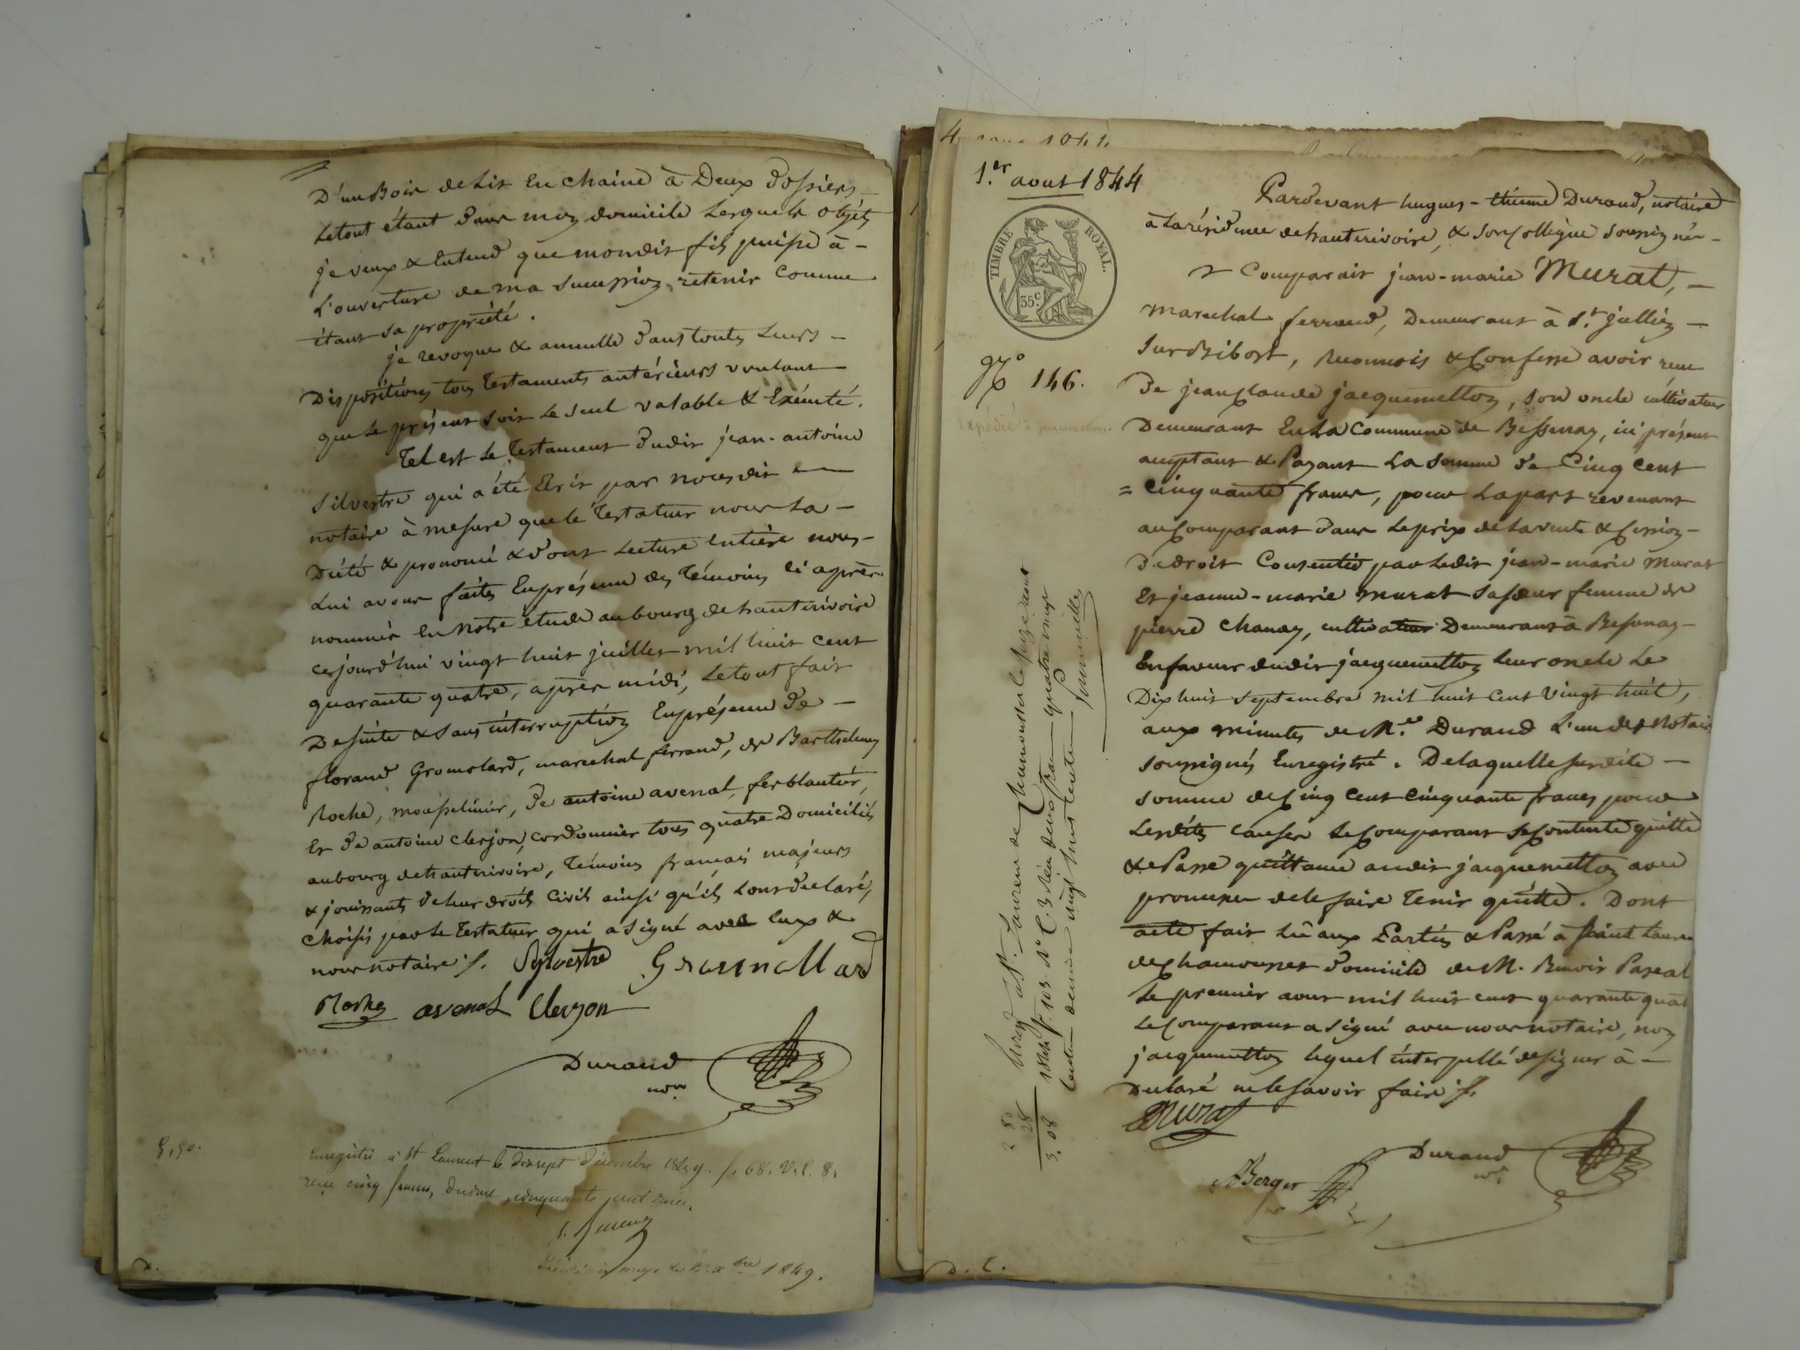 D'un Bois de Lit En Chaine à Deux Dossiers
Letout étant Dans mon domicile Lesquels objets
je veux & Entend que mondit fils puisse à -
L'ouverture de ma succession retenir Comme
étant sa propriété.
je revoque & annulle Dans toutes Leurs -
Dispositions tous Testaments antérieurs voulant
que le présent soit Le seul valable & Exécuté.
Tel est Le Testament Dudit jean-antoine
Silvestre qui a été Ecrit par nousdit
notaire à mesure que le Testateur nous La -
Dicté & prononcé & Dont Lecture Entière nous -
Lui avons faite En présence des Témoins ci après
nommés En notre étude au bourg de hauterivoire
cejourd'hui vingt huit juillet mil huit cent
quarante quatre, après midi, Letout fait
De suite & sans interruption En présence De -
florand Gromolard, marechal ferrand, de Barthelemy
Roche, mousselinier, De antoine avenal, ferblantier,
Et De antoine clerjon, cordonnier tous quatre Domiciliés
au bourg de hauterivoire, Témoins français majeurs
& jouissants de leur droits Civils ainsi qu'ils L'ont Declaré,
Choisis par Le Testateur qui a signé avec Eux &
nous notaire ./.
Sylvestre Gromollard
Roche avenal Clerjon
Durand
nore
5,50.
Enregistré à St Laurent le dixsept décembre 1849. f. 68. V. C. 8.
reçu cinq francs, decime cinquante cent
1849.
D.
4 1844
1.er aout 1844
TIMBRE ROYAL.
35c
No 146.
Expédié à
Enreg. à St. Laurent de Chamousset le seize aout
1844 f. 103 Vo C. 3 Reçu deux francs quatre vingt
centimes decime vingt huit centimes
2 80
28
3. 08
Pardevant hugues-étienne Durand, notaire
à La résidence de hauterivoire, & son Collègue soussignés -
Comparait jean-marie Murat, -
marechal ferrand, Demeurant à St. jullien -
Sur Bibost, Reconnois & Confesse avoir reçu
De jean Claude jacquemetton, son oncle cultivateur
Demeurant En La Commune de Bessenay, ici présent
acceptant & Payant La somme De Cinq Cent
= Cinquante francs, pour La part revenant
au Comparant Dans Le prix de La vente & Cession -
De droit Consentie par Ledit jean-marie Murat
Et jeanne-marie murat sa sœur femme de
pierre Chanay, cultivateur Demeurant à Bessenay -
En faveur dudit jacquemetton Leur oncle Le
Dix huit septembre mil huit cent vingt huit,
aux minutes de M.e Durand L'un des Notaires
soussignés Enregistré. De laquelle susdite -
somme de Cinq Cent Cinquante francs pour
Lesdites causes Le Comparant se Contente quitte
& Passe quittance audit jacquemetton avec
promesse de le faire Tenir quitte. Dont
acte fait Lû aux Parties & Passé à Saint Laurent
de Chamousset Domicile de M. Benoit Pascal
Le premier aout mil huit cent quarante quatre
Le Comparant a signé avec nous notaire, non
jacquemetton lequel interpellé de signer à -
Declaré ne le savoir faire ./.
Murat
Durand
nre
ABerger
D. C.